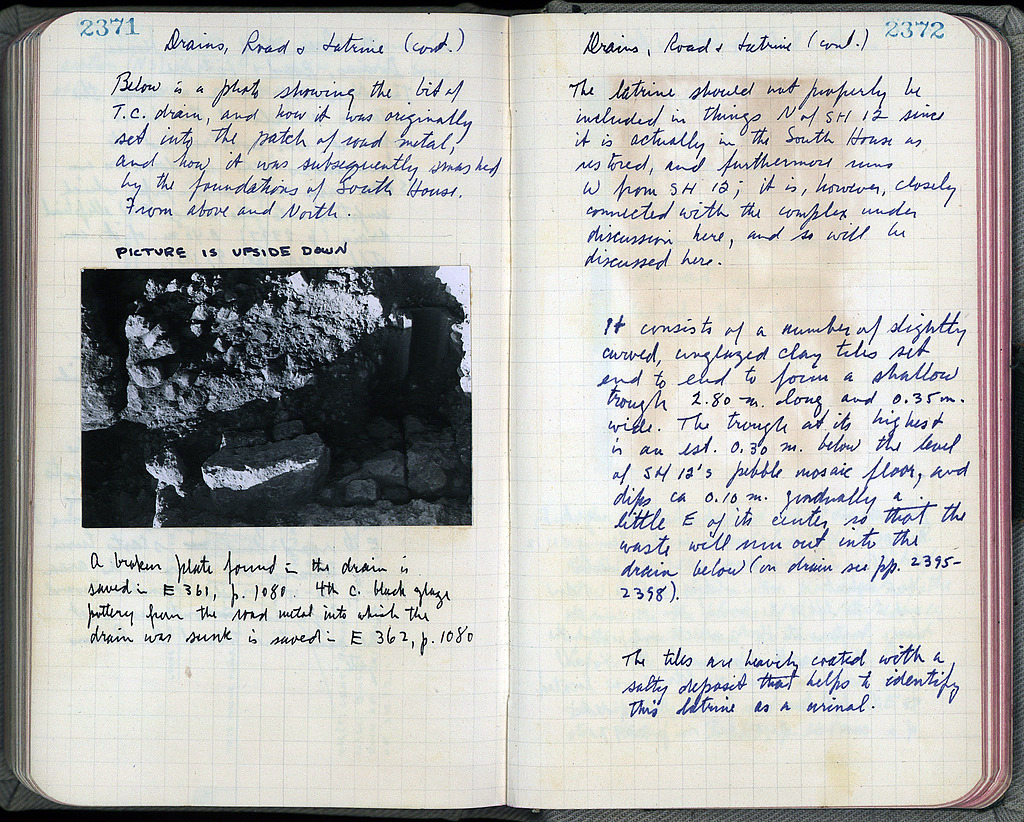 2371
Drains, Road & Latrine (cont.)
Below is a photo showing the bit of
T.C. drain, and how it was originally
set into the patch of road metal,
and how it was subsequently smashed
by the foundations of South House.
From above and North.
PICTURE IS UPSIDE DOWN
A broken plate found in the drain is
saved in E 361, p. 1080. 4th c. black glaze
pottery from the road metal into which the
drain was sunk is saved in E 362, p. 1080
2372
Drains, Road & Latrine (cont.)
The latrine should not properly be
included in things N of SH 12 since
it is actually in the South House as
restored, and furthermore runs
W from SH 12; it is, however, closely
connected with the complex under
discussion here, and so will be
discussed here.
It consists of a number of slightly
curved, unglazed clay tiles set
end to end to form a shallow
trough 2.80 m. long and 0.35 m.
wide. The trough at its highest
is an est. 0.30 m. below the level
of SH 12's pebble mosaic floor, and
dips ca 0.10 m. gradually a
little E of its center, so that the
waste will run out into the
drain below (on drain see pp. 2395-
2398).
The tiles are heavily coated with a
salty deposit that helps to identify
this latrine as a urinal.